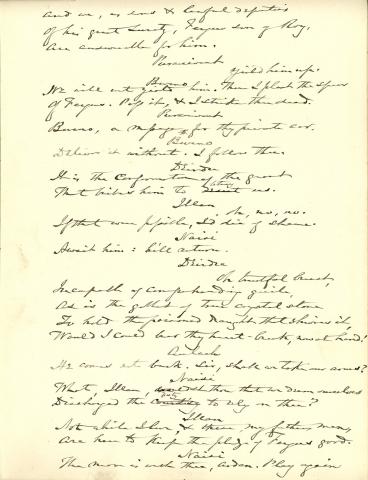 and we, as sons & lawful deputies
of his great surety, Fergus son of Roy,
are answerable for him.
Pursuivant
yield him up.
Buino
We will not yield him. Here I plant the spear
of Fergus. Pass it, & I strike thee dead.
Pursuivant
Buino, a message for thy private ear.
Buino
Deliver it without. I follow thee.
Deirdre
It is the Confirmation of the grant
That bribes him to us.
Illan
Oh, no, no.
If that were possible, I'd die of shame.
Naisi
Await him: hill
Deirdre
Oh trustful heart,
Incapable of comprehending guile,
As is the goblet of true crystal stone
To hold the poisoned draught that shivers it
Would I could
He comes not back. Sir, shall we take our arms?
Naisi
What, Illan, thou that we deem ourselves
Discharged the duty to rely on thee?
Illan
Not while I live, & these, my father's men,
are here to keep the pledge of Fergus good.
Naisi
The moon is with thee, Ardan. Play again